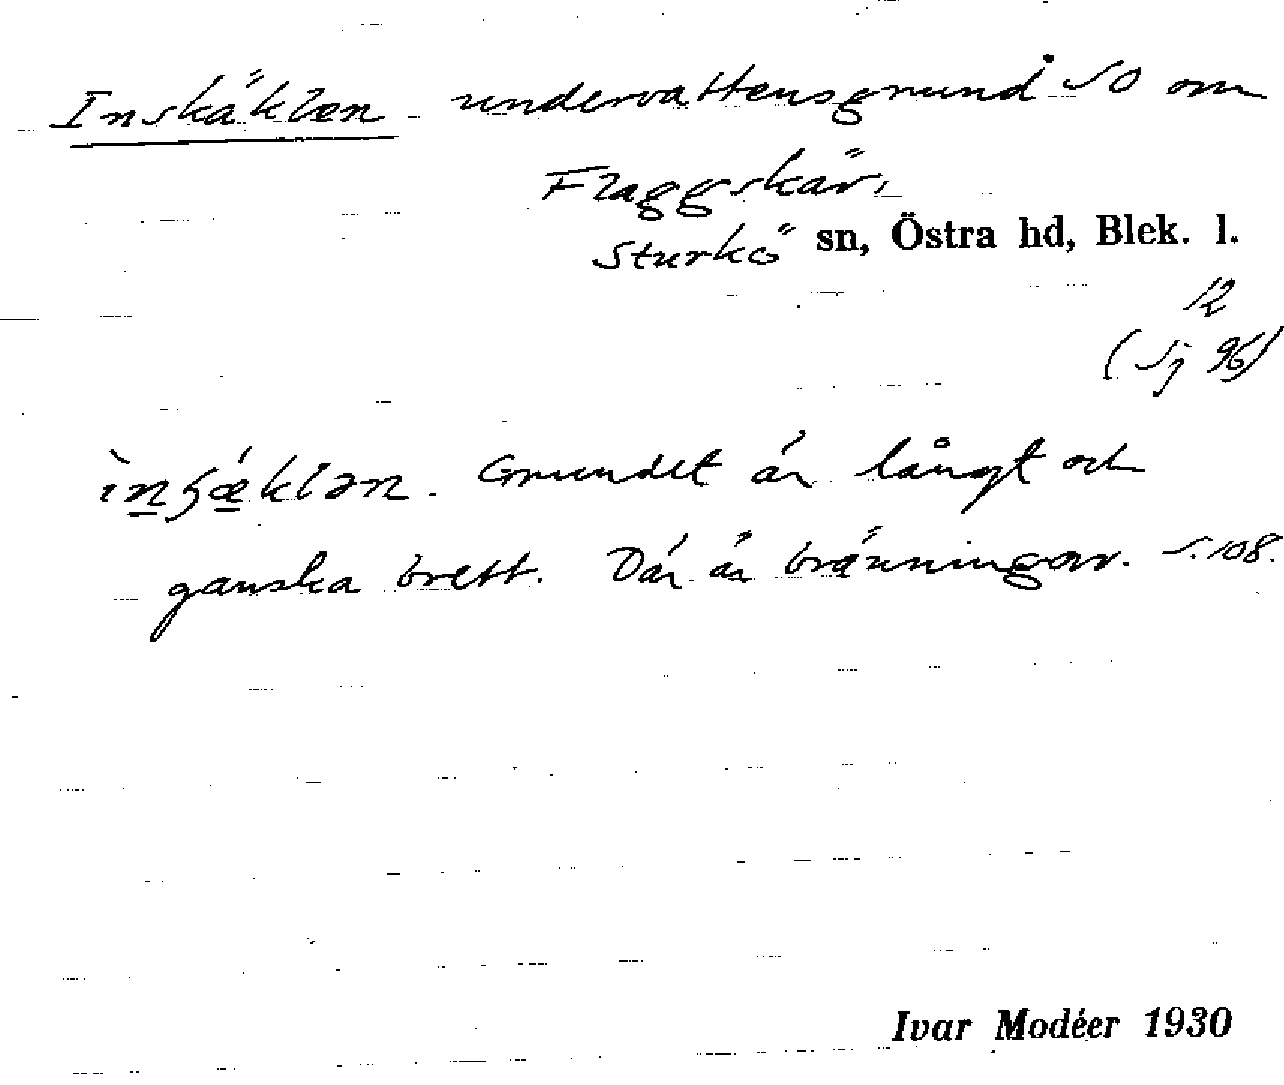 Inskäklen undervattensgrund SO om
Flaggskär,
Sturkö sn, Östra hd, Blek. l.
12
(Sj 96)
Grundet är långt och
ganska brett. Där är bränningar. S. 108.
Ivar Modéer 1930